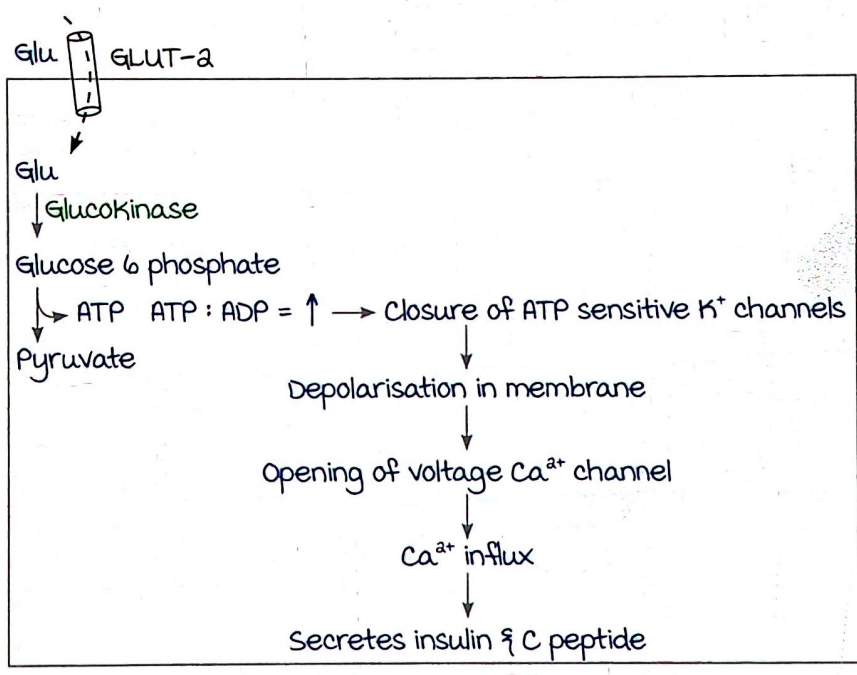 Glu GLUT-2
Glu
Glucokinase
Glucose 6 phosphate
ATP ATP : ADP = ↑ → Closure of ATP sensitive K⁺ channels
Pyruvate
Depolarisation in membrane
Opening of voltage Ca²⁺ channel
Ca²⁺ influx
Secretes insulin & C peptide